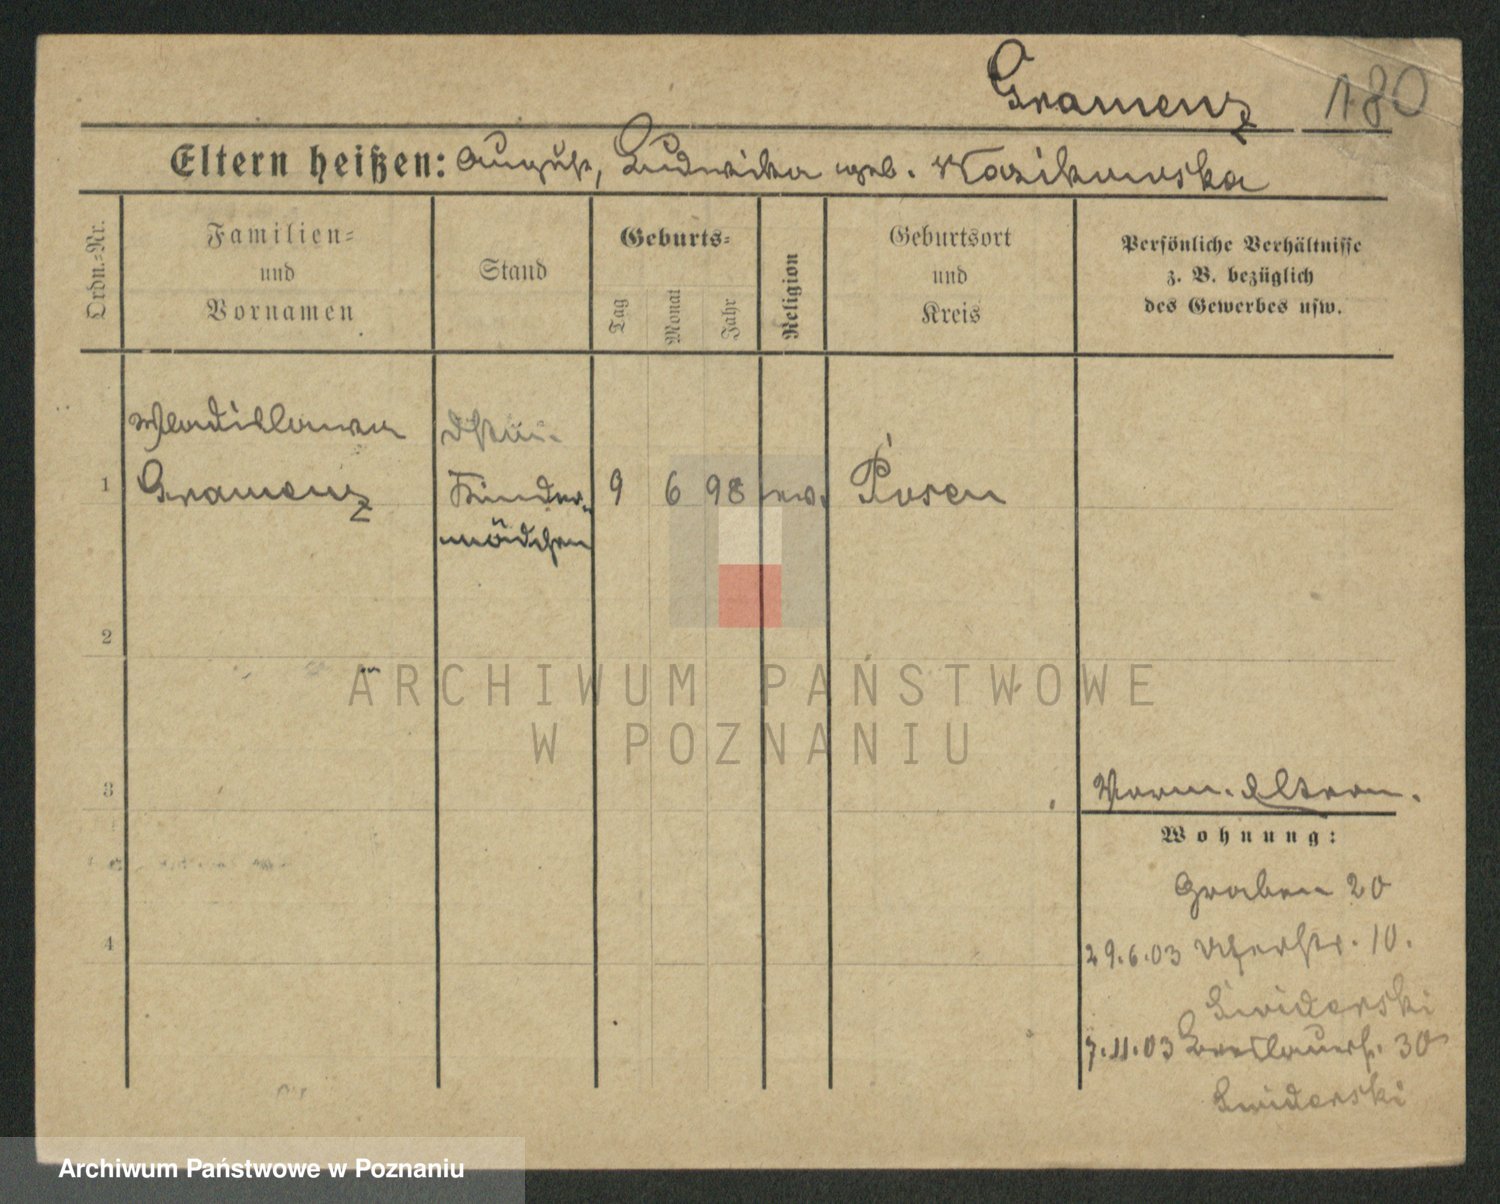 Gramenz 180
Eltern heißen: August, Ludwika geb. Kazikowska
Ordn.-Nr.
Familien-
und
Vornamen
Stand
Geburts-
Tag
Monat
Jahr
Religion
Geburtsort
und
Kreis
Persönliche Verhältnisse
z. B. bezüglich
des Gewerbes usw.
Wladislawa
1 Gramenz
Kinder-
mädchen
9 6 98 ev. Posen
2
3
Vorm. Eltern.
Wohnung:
Graben 20
4
29.6.03 Uferstr. 10.
Swiderski
7.11.03 Breslauerstr. 30
Swiderski
ARCHIWUM PAŃSTWOWE
W POZNANIU
Archiwum Państwowe w Poznaniu